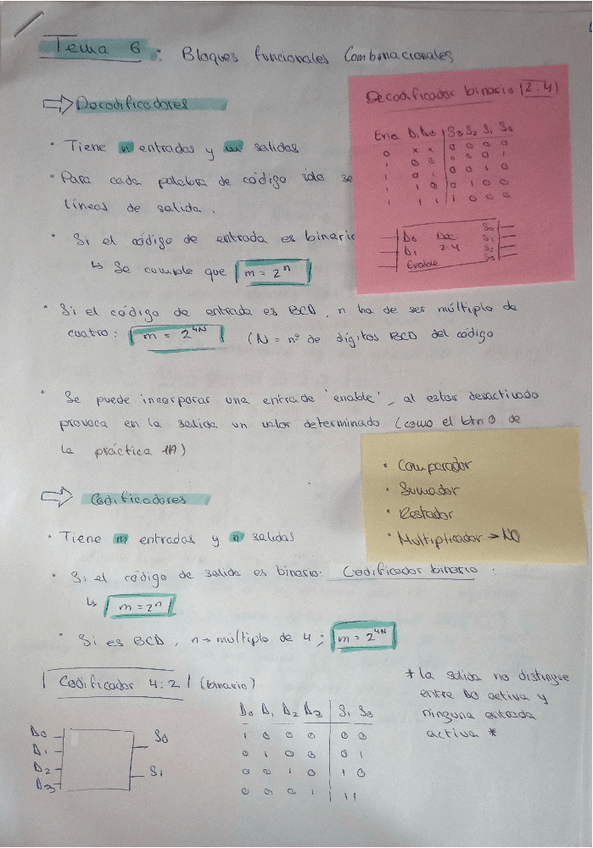 Tema 6: Bloques funcionales Combinacionales
⇒ Decodificadores
· Tiene n entradas y m salidas
· Para cada palabra de código solo se
líneas de salida.
· Si el código de entrada es binario
↳ Se cumple que m = 2^n
· Si el código de entrada es BCD, n ha de ser múltiplo de
cuatro: m = 2^4N (N = nº de dígitos BCD del código
· Se puede incorporar una entrada 'enable', al estar desactivado
provoca en la salida un valor determinado (como el btn0 de
la práctica 1A)
Decodificador binario (2:4)
Ena D1 D0 S3 S2 S1 S0
0 x x 0 0 0 0
1 0 0 0 0 0 1
1 0 1 0 0 1 0
1 1 0 0 1 0 0
1 1 1 1 0 0 0
D0 Dec S0
D1 2:4 S1
S2
Enable S3
· Comparador
· Sumador
· Restador
· Multiplicador → NO
⇒ Codificadores
· Tiene m entradas y n salidas
· Si el código de salida es binario: Codificador binario:
↳ m = 2^n
· Si es BCD, n → múltiplo de 4; m = 2^4N
Codificador 4:2 (binario)
D0
D1
D2
D3
S0
S1
D0 D1 D2 D3 S1 S0
1 0 0 0 0 0
0 1 0 0 0 1
0 0 1 0 1 0
0 0 0 1 1 1
* la salida no distingue
entre D0 activa y
ninguna entrada
activa *